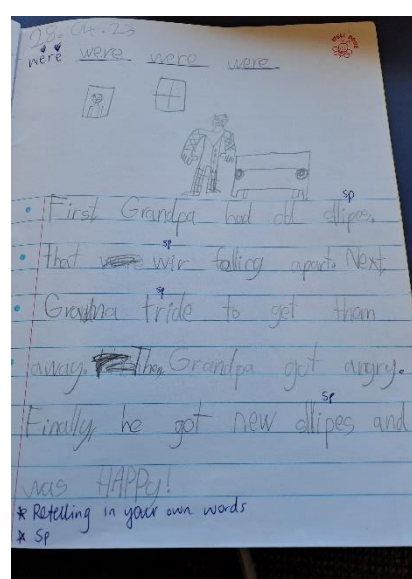 28.04.23
were were were were
sp
First Grandpa had old slipes.
sp
that wir falling apart. Next,
sp
Grauma tride to get them
away. Then Grandpa got angry.
sp
Finally, he got new slipes and
was HAPPy!
* Retelling in your own words
* Sp